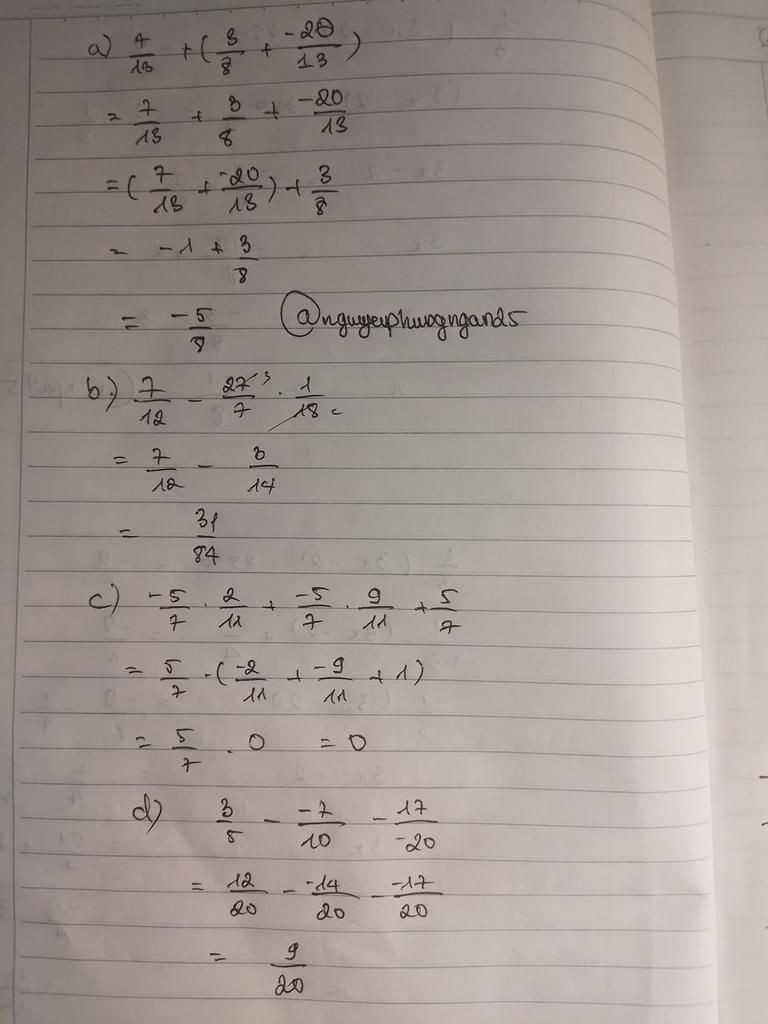 a) 7/13 + (3/8 + -20/13)
= 7/13 + 3/8 + -20/13
= (7/13 + -20/13) + 3/8
= -1 + 3/8
= -5/8 @nguyenphuogngan25
b) 7/12 - 27/7 3 . 1/18
= 7/12 - 3/14
= 31/84
c) -5/7 . 2/11 + -5/7 . 9/11 + 5/7
= 5/7 . (-2/11 + -9/11 + 1)
= 5/7 . 0 = 0
d) 3/5 - -7/10 - 17/-20
= 12/20 - -14/20 - -17/20
= 9/20